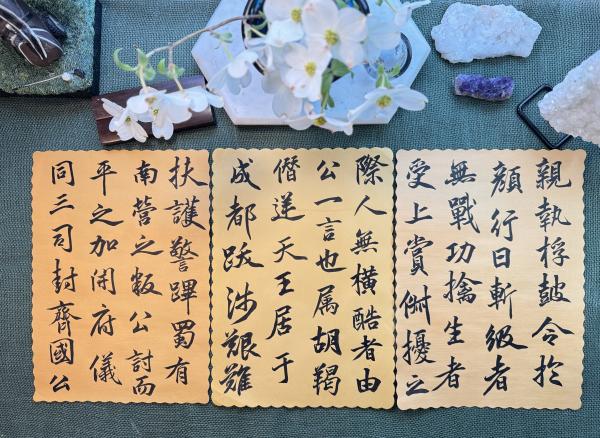 親執桴鼓令於
顏行日斬級者
無戰功擒生者
受上賞俶擾之
際人無橫酷者由
公一言也属胡羯
僭逆天王居于
成都跋涉艱難
扶護警蹕蜀有
南營之叛公討而
平之加開府儀
同三司封齊國公